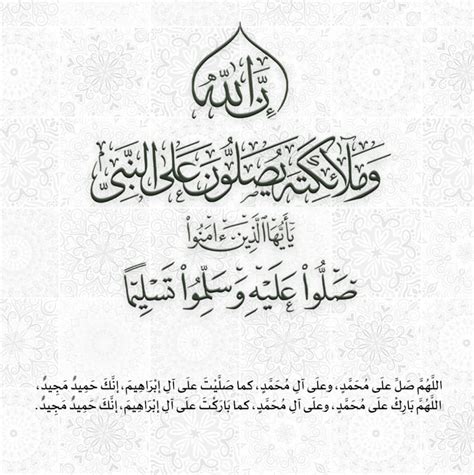 إِنَّ اللّٰهَ
وَمَلَآئِكَتَهُ يُصَلُّونَ عَلَى النَّبِيِّ
يَٰٓأَيُّهَا ٱلَّذِينَ ءَامَنُوا۟
صَلُّوا۟ عَلَيْهِ وَسَلِّمُوا۟ تَسْلِيمًا
اللَّهُمَّ صَلِّ علَى مُحَمَّدٍ، وعلَى آلِ مُحَمَّدٍ، كما صَلَّيْتَ علَى آلِ إبْرَاهِيمَ، إنَّكَ حَمِيدٌ مَجِيدٌ،
اللَّهُمَّ بَارِكْ علَى مُحَمَّدٍ، وعلَى آلِ مُحَمَّدٍ، كما بَارَكْتَ علَى آلِ إبْرَاهِيمَ، إنَّكَ حَمِيدٌ مَجِيدٌ.